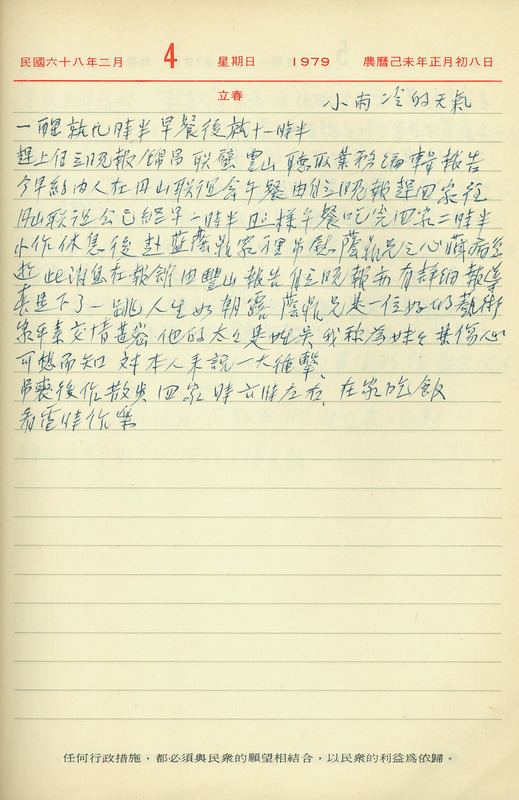 民國六十八年二月 4 星期日 1979 農曆己未年正月初八日
立春 小雨冷的天氣
一醒就九時半早餐後就十一時半
趕上自立晚報錦昌聯璧豐山聽取業務編輯報告
今早給內人在丹山聯誼會午餐由自立晚報趕回家程
丹山聯誼會已經早一時半照樣午餐吃完回家二時半
小作休息後赴藍蔭鼎家裡吊慰蔭鼎兄之心臟病急
逝此消息在報館由豐山報告自立晚報亦有詳細報導
真是下了一跳人生如朝露蔭鼎兄是一位好的藝術
家平素交情甚密他的太太是姓吳我称為妹々其傷心
可想而知對本人來說一大衝擊
吊喪後作散步回家時六時左右在家吃飯
看電時作業
任何行政措施，都必須與民衆的願望相結合，以民衆的利益爲依歸。